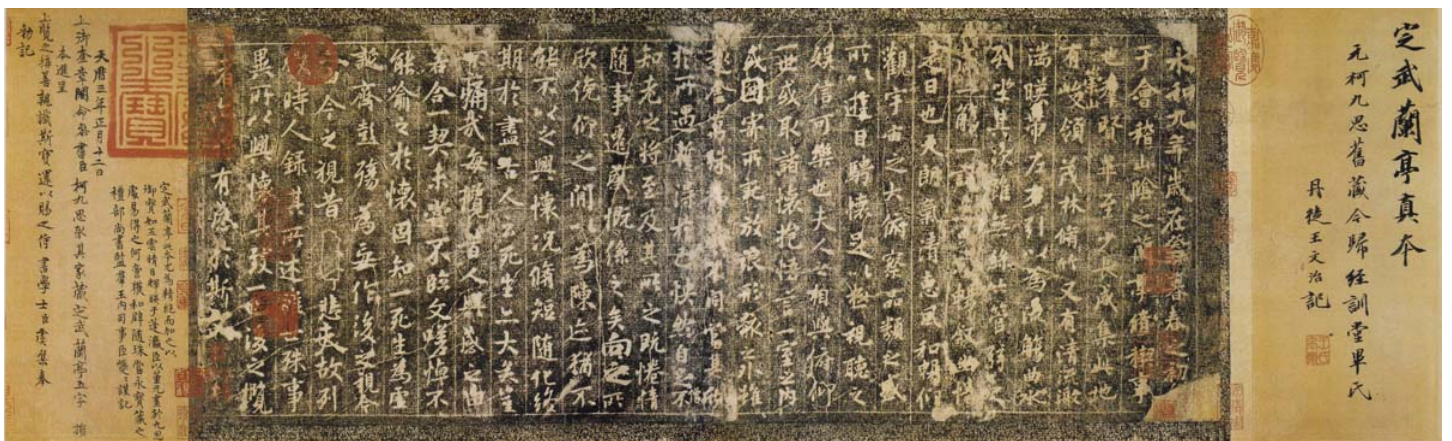 定武蘭亭真本
元柯九思舊藏今歸經訓堂畢氏
丹徒王文治記
永和九年歲在癸暮春之初
于會稽山陰之蘭亭脩稧事
也羣賢畢至少長咸集此地
有峻領茂林脩竹又有清流激
湍暎帶左右引以為流觴曲水
列坐其次雖無絲竹管弦之
盛一觴一詠亦足以暢敘幽情
是日也天朗氣清惠風和暢仰
觀宇宙之大俯察品類之盛
所以遊目騁懷足以極視聽之
娛信可樂也夫人之相與俯仰
一世或取諸懷抱悟言一室之內
或因寄所託放浪形骸之外雖
趣舍萬殊靜躁不同當其欣
於所遇暫得於己快然自足不
知老之將至及其所之既惓情
隨事遷感慨係之矣向之所
欣俛仰之間以為陳迹猶不
能不以之興懷況脩短隨化終
期於盡古人云死生亦大矣豈
不痛哉每攬昔人興感之由
若合一契未嘗不臨文嗟悼不
能喻之於懷固知一死生為虛
誕齊彭殤為妄作後之視今
亦今之視昔悲夫故列
敘時人錄其所述雖世殊事
異所以興懷其致一也後之攬
者有感於斯文
定武蘭亭此本尤為精絕而加之以
御寶如五雲晴日輝映于蓬瀛臣以董元畫於九思
處易得之何啻獲和璧隨珠當永寶藏之
禮部尚書監羣玉內司事臣巎謹記
天曆三年正月十二日
上御奎章閣命參書臣柯九思取其家藏定武蘭亭五字損
本進呈
上覽之稱善親識斯寶還以賜之侍書學士臣虞集奉
勑記